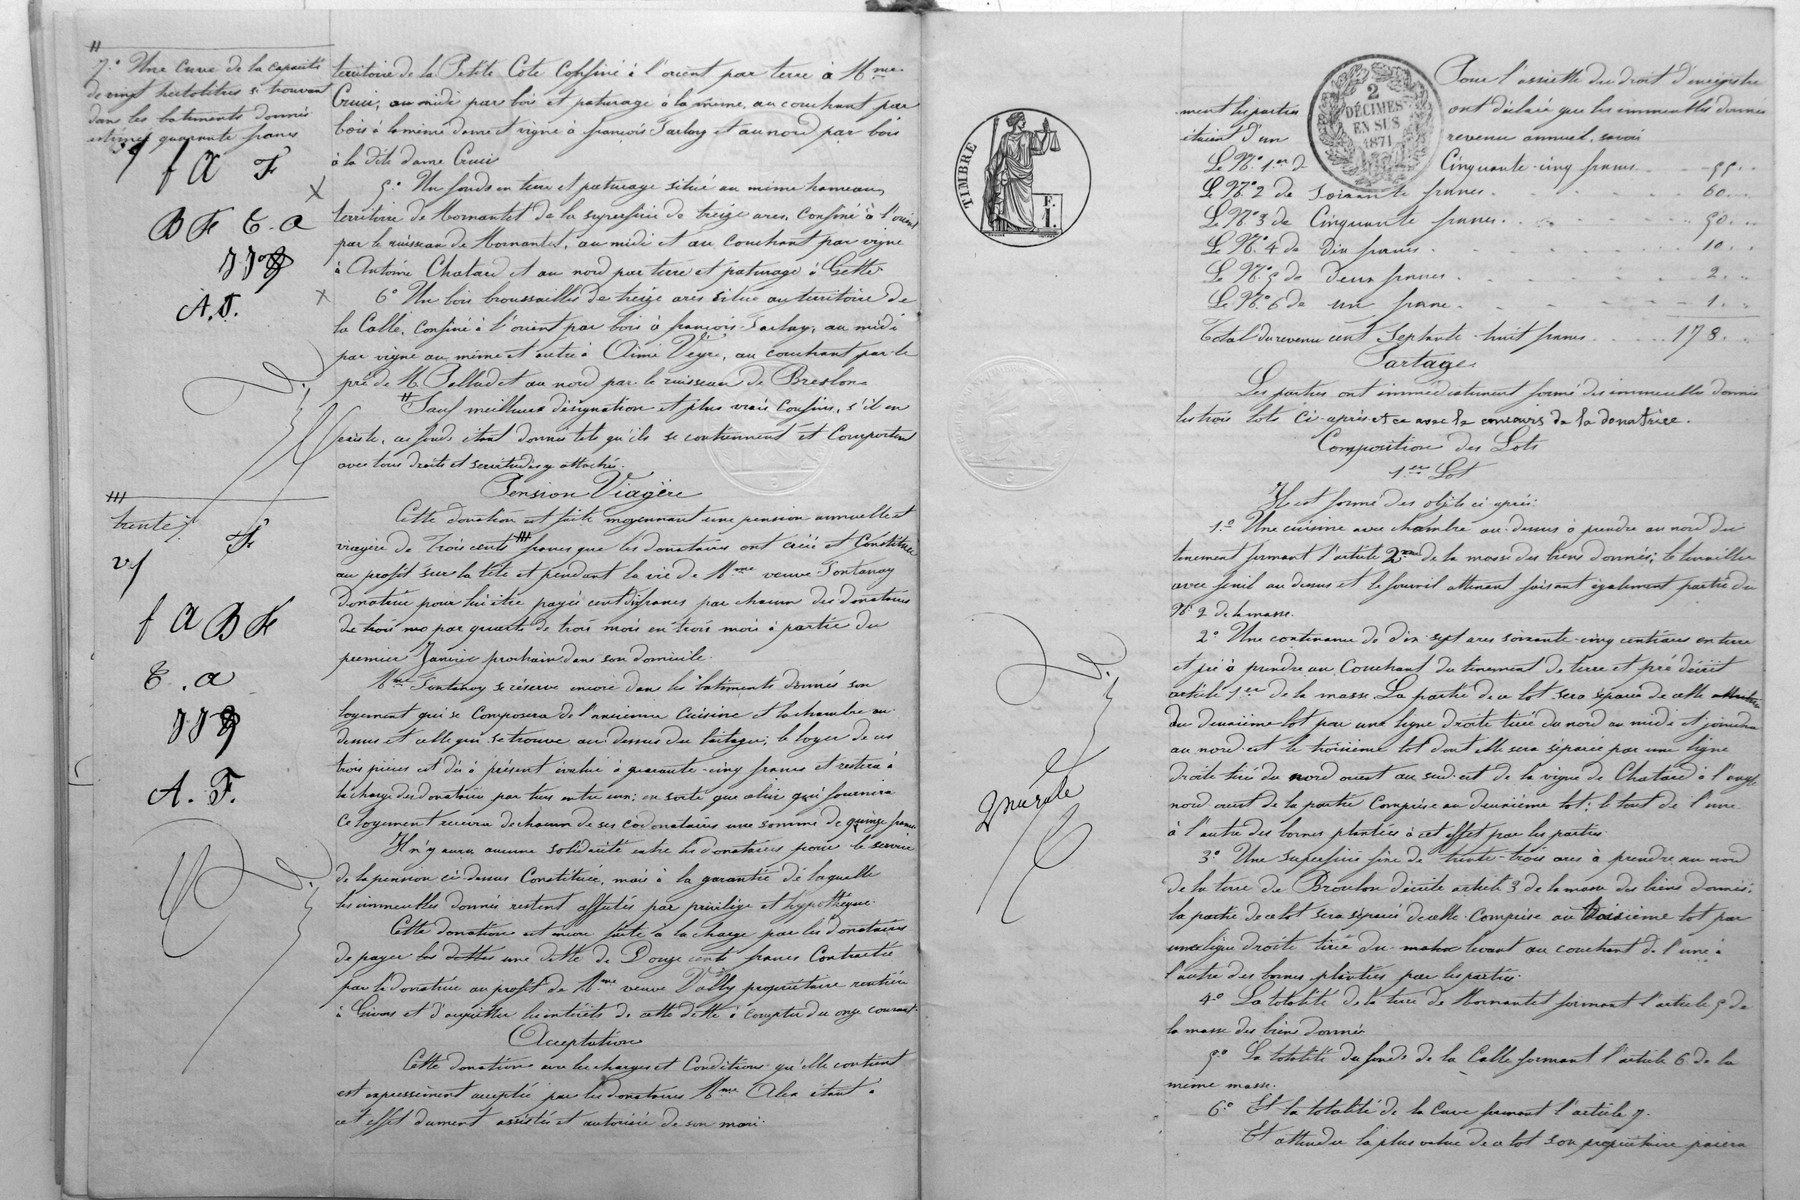 7° Une Cuve de la capacité
de vingt hectolitres se trouvant
dans les batiments donnés
estimée quarante francs
f A F
B F C. a
JJ
A. F.
trente
F
f A B F
C. a
JJ
A. F.
territoire de la Petite Cote Confiné à l'orient par terre à Mme
Cruci, au midi par bois et paturage à la même, au couchant par
bois à la même dame et vigne à françois et au nord par bois
à la dite dame Cruci
5° Un fonds en terre et paturage situé au même hameau,
territoire de Mornantet de la superficie de treize ares, Confiné à l'orient
par le ruisseau de Mornantet, au midi et au couchant par vigne
à Antoine Chatard et au nord par terre et paturage à Gette
6° Un bois broussailles de treize ares situé au territoire de
la Calle, Confiné à l'orient par bois à françois au midi
par vigne au même et autre à Aimé Veyre, au couchant par le
pré de M. Pellud et au nord par le ruisseau de
Sauf meilleure désignation et plus vrais Confins, s'il en
existe, ces fonds étant donnés tels qu'ils se contiennent et Comportent
avec tous droits et servitudes y attachés.
Pension Viagère
Cette donation est faite moyennant une pension annuelle et
viagère de Trois cents francs que les donataires ont créée et Constituée
au profit sur la tête et pendant la vie de Mme veuve Fontanay
Donatrice pour lui être payée cent dix francs par chacun des donataires
par quarts de trois mois en trois mois à partir du
premier Janvier prochain dans son domicile.
Mme Fontanay se réserve encore dans les batiments donnés son
logement qui se Composera de l'ancienne Cuisine et la chambre au
dessus et celle qui se trouve au dessus du le loyer de ces
trois pièces est dès à présent évalué à quarante-cinq francs et restera à
la charge des donataires par tiers entre eux; en sorte que celui qui fournira
ce logement recevra de chacun de ses codonataires une somme de quinze francs
Il n'y aura aucune solidarité entre les donataires pour le service
de la pension ci-dessus Constituée, mais à la garantie de laquelle
les immeubles donnés restent affectés par privilège et hypothèque.
Cette donation est encore faite à la charge par les donataires
de payer une dette de Douze cents francs Contractée
par la donatrice au profit de Mme veuve Vally propriétaire rentière
à Givors et d'acquitter les intérêts de cette dette à compter du onze courant.
Acceptation
Cette donation avec les charges et Conditions qu'elle contient
est expressément acceptée par les donataires Mme étant à
cet effet dument assistée et autorisée de son mari.
TIMBRE
F.
1.
2
DÉCIMES
EN SUS
1871
Pour l'assiette du droit d'enregistre
ment les parties ont déclaré que les immeubles donnés
étaient d'un revenu annuel, savoir
Le N° 1er de Cinquante-cinq francs 55
Le N° 2 de Soixante francs 60
Le N° 3 de Cinquante francs 50
Le N° 4 de Dix francs 10
Le N° 5 de Deux francs 2
Le N° 6 de un franc 1
Total du revenu cent Septante huit francs 178
Partage
Les parties ont immédiatement formé des immeubles donnés
les trois lots Ci-après et ce avec le concours de la donatrice.
Composition des Lots
1er Lot
Il est formé des objets ci après:
1° Une cuisine avec chambre au dessus à prendre au nord du
tenement formant l'article 2me de la masse des biens donnés;
avec fenil au dessus et le fournil attenant faisant également partie du
N° 2 de la masse.
2° Une contenance de dix-sept ares soixante-cinq centiares en terre
et pré à prendre au Couchant du tenement de terre et pré décrit
article 1er de la masse. La partie de ce lot sera séparée de celle
du deuxième lot par une ligne droite tirée du nord au midi et joindra
au nord-est le troisième lot dont elle sera séparée par une ligne
droite tirée du nord ouest au sud-est de la vigne de Chatard à l'angle
nord ouest de la partie Comprise au deuxième lot; le tout de l'une
à l'autre des bornes plantées à cet effet par les parties
3° Une superficie fixe de trente-trois ares à prendre au nord
de la terre de décrite article 3 de la masse des biens donnés;
la partie de ce lot sera séparée de celle Comprise au troisième lot par
une ligne droite tirée du levant au couchant de l'une à
l'autre des bornes plantées par les parties.
4° La totalité de la terre de Mornantet formant l'article 5 de
la masse des biens donnés
5° La totalité du fonds de la Calle formant l'article 6 de la
même masse.
6° Et la totalité de la Cuve formant l'article 7.
Et attendu la plus value de ce lot son propriétaire paiera